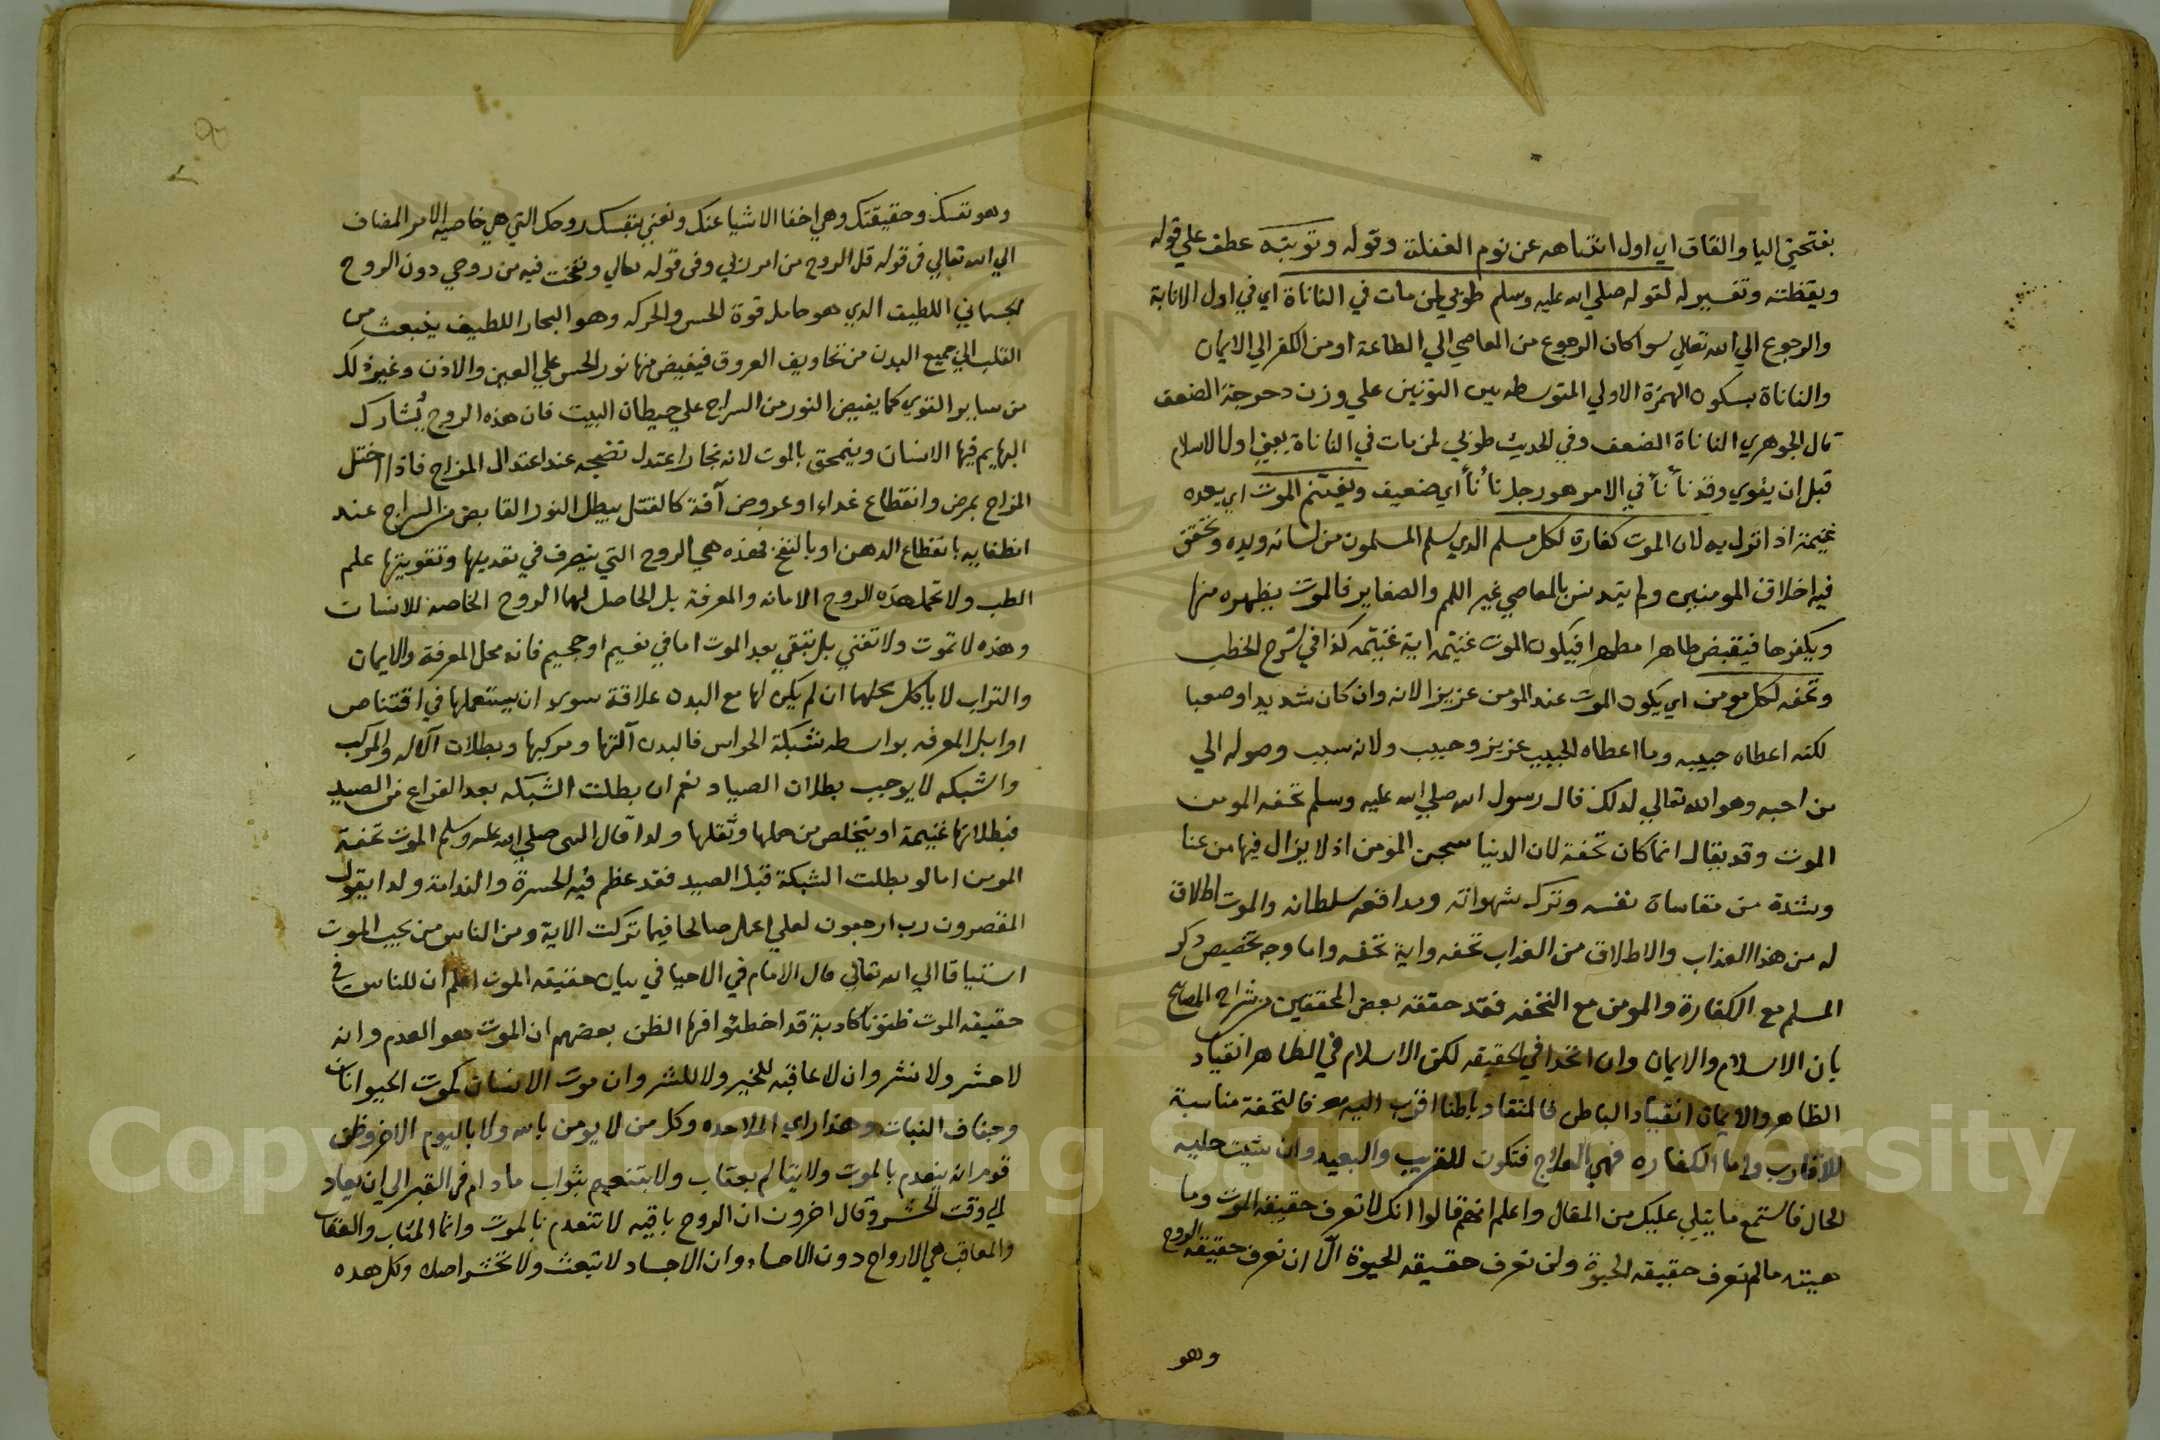 بفتحتي اليا والقاف اي اول انتباهه عن نوم الغفلة وقوله وتوبته عطف علي قوله
ويقظته وتفسير له لقوله صلي الله عليه وسلم طوبي لمن مات في النأنأة اي في اول الانابة
والرجوع الي الله تعالي سوا كان الرجوع من المعاصي الي الطاعة او من الكفر الي الايمان
والنأنأة بسكون الهمزة الاولي المتوسطه بين النونين علي وزن دحرجة الضعف
قال الجوهري النأنأة الضعف وفي الحديث طوبي لمن مات في النأنأة يعني اول الاسلام
قبل ان يقوي وقد نأنأ في الامر هو رجل نأنأ اي ضعيف ويغتنم الموت اي يعده
غنيمة اذا نزل به لان الموت كفارة لكل مسلم الذي يسلم المسلمون من لسانه ويده وتحقق
فيه اخلاق المومنين ولم يتدنس بالمعاصي غير اللمم والصغاير فالموت يطهره منها
ويكفرها فيقبض طاهرا مطهرا فيكون الموت غنيمه اية غنيمه كذا في شرح الخطب
وتحفه لكل مومن اي يكون الموت عند المومن عزيزا لانه وان كان شديدا وصعبا
لكنه اعطاه حبيبه وما اعطاه الحبيب عزيز وحبيب ولانه سبب وصوله الي
من احبه وهو الله تعالي لذلك قال رسول الله صلي الله عليه وسلم تحفه المومن
الموت وقد يقال انما كان تحفة لان الدنيا سجن المومن اذ لا يزال فيها من عنا
وشدة من مقاساة نفسه وترك شهواته ومدافعه سلطانه والموت اطلاق
له من هذا العذاب والاطلاق من العذاب تحفه واية تحفه واما وجه تخصيص ذكر
المسلم مع الكفارة والمومن مع التحفه فقد حققه بعض المحققين من شراح المصابيح
بان الاسلام والايمان وان اتحدا في الحقيقه لكن الاسلام في الظاهر انقياد
الظاهر والايمان انقياد الباطن فالمنقاد باطنا اقرب اليه فالتحفة مناسبة
للاقارب واما الكفاره فهي العلاج فتكون للقريب والبعيد وان شيت حليه
الحال فاستمع ما يتلي عليك من المقال واعلم انهم قالوا انك لا تعرف حقيقة الموت وما
هيته ما لم تعرف حقيقه الحيوة ولن تعرف حقيقه الحيوة الا ان تعرف حقيقه الروح
وهو
وهو نفسك وحقيقتك وهي اخفا الاشيا عنك ونعني بنفسك روحك التي هي خاصية الامر المضاف
الي الله تعالي في قوله قل الروح من امر ربي وفي قوله تعالي ونفخت فيه من روحي دون الروح
الجسماني اللطيف الذي هو حامل قوة الحس والحركه وهو البخار اللطيف ينبعث من
القلب الي جميع البدن من تجاويف العروق فيفيض منها نور الحس علي العين والاذن وغير ذلك
من ساير القوي كما يفيض النور من السراج علي حيطان البيت فان هذه الروح يشارك
البهايم فيها الانسان وينمحق بالموت لانه بخار اعتدل نضجه عند اعتدال المزاج فاذا اختل
المزاج بمرض وانقطاع غداء او عروض آفة كالقتل يبطل النور الفايض من السراج عند
انطفايه بانقطاع الدهن او بالنفخ فهذه هي الروح التي يتصرف في تعديلها وتقويتها علم
الطب ولا تحمل هذه الروح الامانه والمعرفة بل الحاصل لها الروح الخاصه للانسان
وهذه لا تموت ولا تفني بل تبقي بعد الموت اما في نعيم او جحيم فانه محل المعرفة والايمان
والتراب لا ياكل محلهما ان لم يكن لها مع البدن علاقة سوي ان يستعملها في اقتناص
اوايل المعرفه بواسطه شبكة الحواس فالبدن آلتها ومركبها وبطلان الآله والمركب
والشبكه لا يوجب بطلان الصياد نعم ان بطلت الشبكه بعد الفراغ من الصيد
فبطلانها غنيمة او يتخلص من حملها وثقلها ولذا قال النبي صلي الله عليه وسلم الموت تحفة
المومن اما لو بطلت الشبكة قبل الصيد فقد عظم فيه الحسرة والندامة ولذا يقول
المقصرون رب ارجعون لعلي اعمل صالحا فيما تركت الاية ومن الناس من يحب الموت
اشتياقا الي الله تعالي قال الامام في الاحيا في بيان حقيقه الموت اعلم ان للناس في
حقيقه الموت ظنونا كاذبة قد اخطئوا فيها الظن بعضهم ان الموت هو العدم وانه
لا حشر ولا نشر وان لا عاقبه للخير ولا للشر وان موت الانسان كموت الحيوانات
وجفاف النبات وهذا راي الملاحده وكل من لا يومن بالله ولا باليوم الاخر وظن
قوم انه ينعدم بالموت ولا يتالم بعقاب ولا يتنعم بثواب ما دام في القبر الي ان يعاد
الي وقت الحشر وقال اخرون ان الروح باقيه لا تنعدم بالموت وانما المثاب والعقاب
والمعاقب هي الارواح دون الاجساد وان الاجساد لا تبعث ولا تحشر اصلا وكل هذه
Copyright © King Saud University